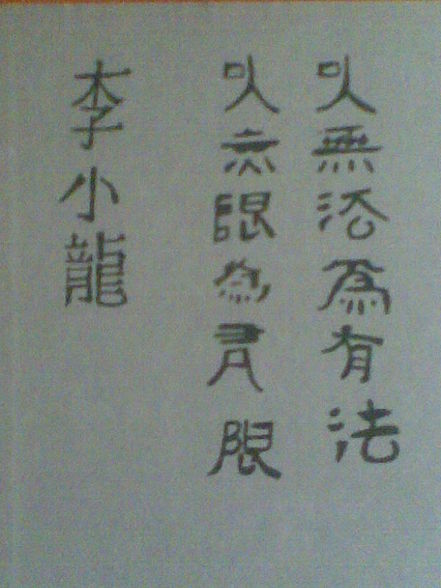 以無法為有法
以無限為有限
李小龍